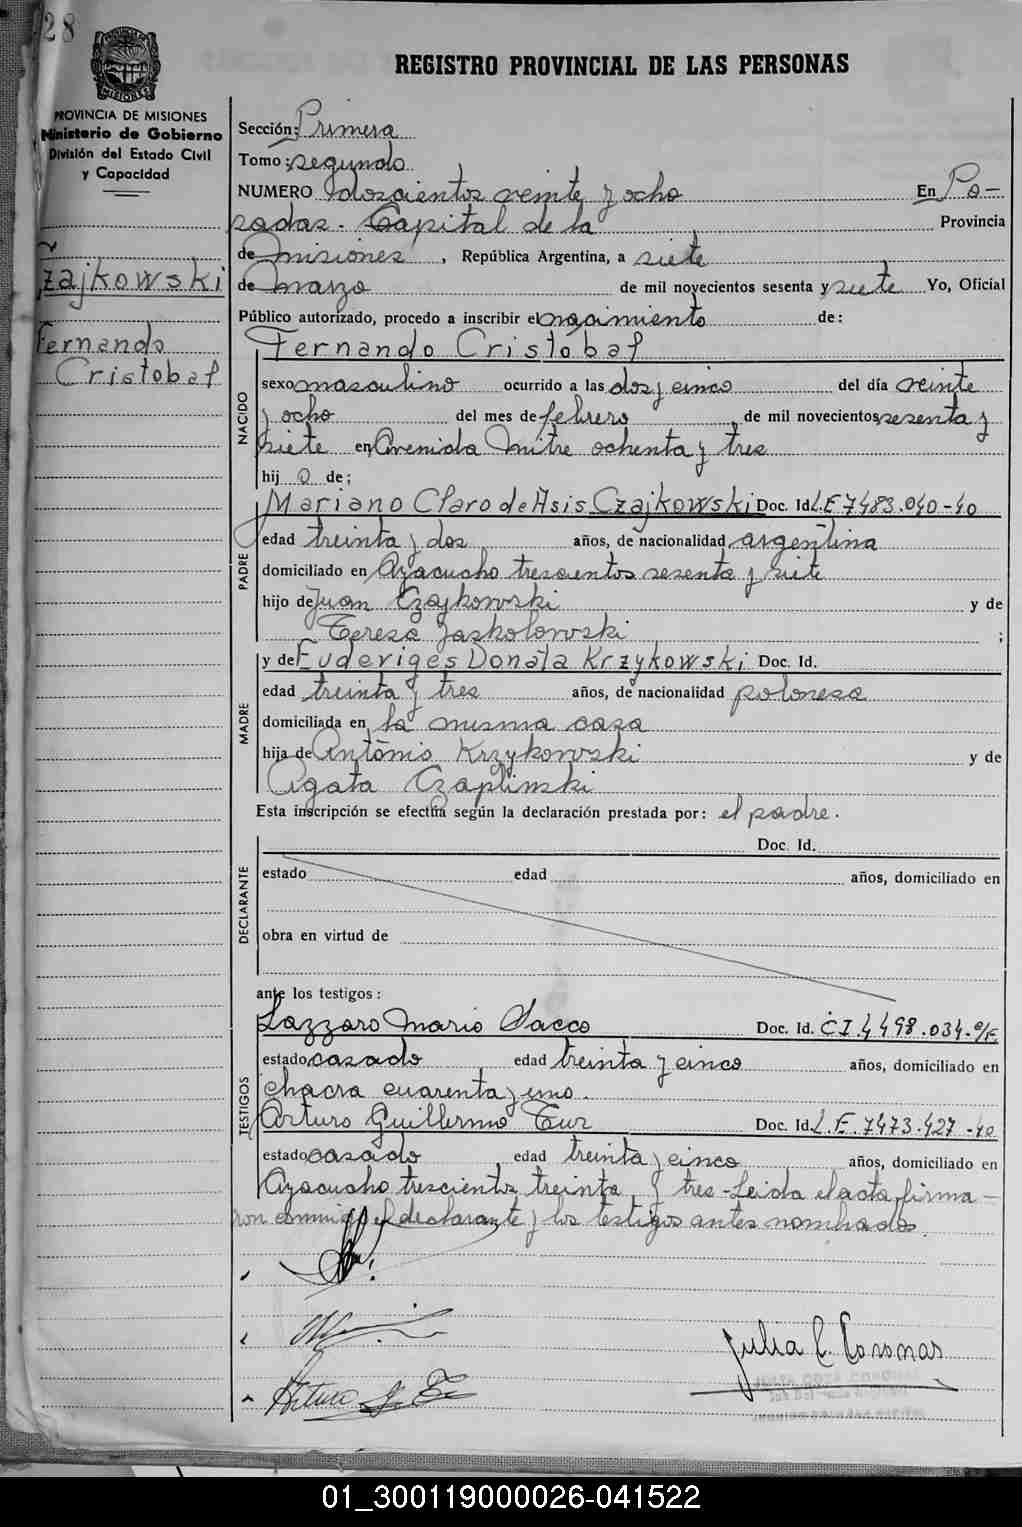 28
REGISTRO PROVINCIAL DE LAS PERSONAS
MISIONES
PROVINCIA DE MISIONES
Ministerio de Gobierno
División del Estado Civil
y Capacidad
Czajkowski
Fernando
Cristobal
Sección: Primera
Tomo: segundo
NUMERO doscientos veinte y ocho En Po-
sadas - Capital de la Provincia
de Misiones, República Argentina, a siete
de marzo de mil novecientos sesenta y siete Yo, Oficial
Público autorizado, procedo a inscribir el nacimiento de:
Fernando Cristobal
NACIDO
sexo masculino ocurrido a las dos y cinco del día veinte
y ocho del mes de febrero de mil novecientos sesenta y
siete en Avenida Mitre ochenta y tres
hijo de;
PADRE
Mariano Claro de Asis Czajkowski Doc. Id. L.E 7483.040-40
edad treinta y dos años, de nacionalidad argentina
domiciliado en Ayacucho trescientos sesenta y siete
hijo de Juan Czajkowski y de
Teresa Jaskolowski ;
MADRE
y de Euderiges Donata Krzykowski Doc. Id.
edad treinta y tres años, de nacionalidad polonesa
domiciliada en la misma casa
hija de Antonio Krzykowski y de
Agata Czaplinski
Esta inscripción se efectúa según la declaración prestada por: el padre.
DECLARANTE
Doc. Id.
estado edad años, domiciliado en
obra en virtud de
ante los testigos:
TESTIGOS
Lazzaro Mario Sacco Doc. Id. C.I 4498.034.
estado casado edad treinta y cinco años, domiciliado en
chacra cuarenta y uno.
Arturo Guillermo Tur Doc. Id. L.E. 7473.427-40
estado casado edad treinta y cinco años, domiciliado en
Ayacucho trescientos treinta y tres - Leida el acta firma-
ron conmigo el declarante y los testigos antes nombrados.
Julia C. Coronas
Arturo G. Tur
01_300119000026-041522